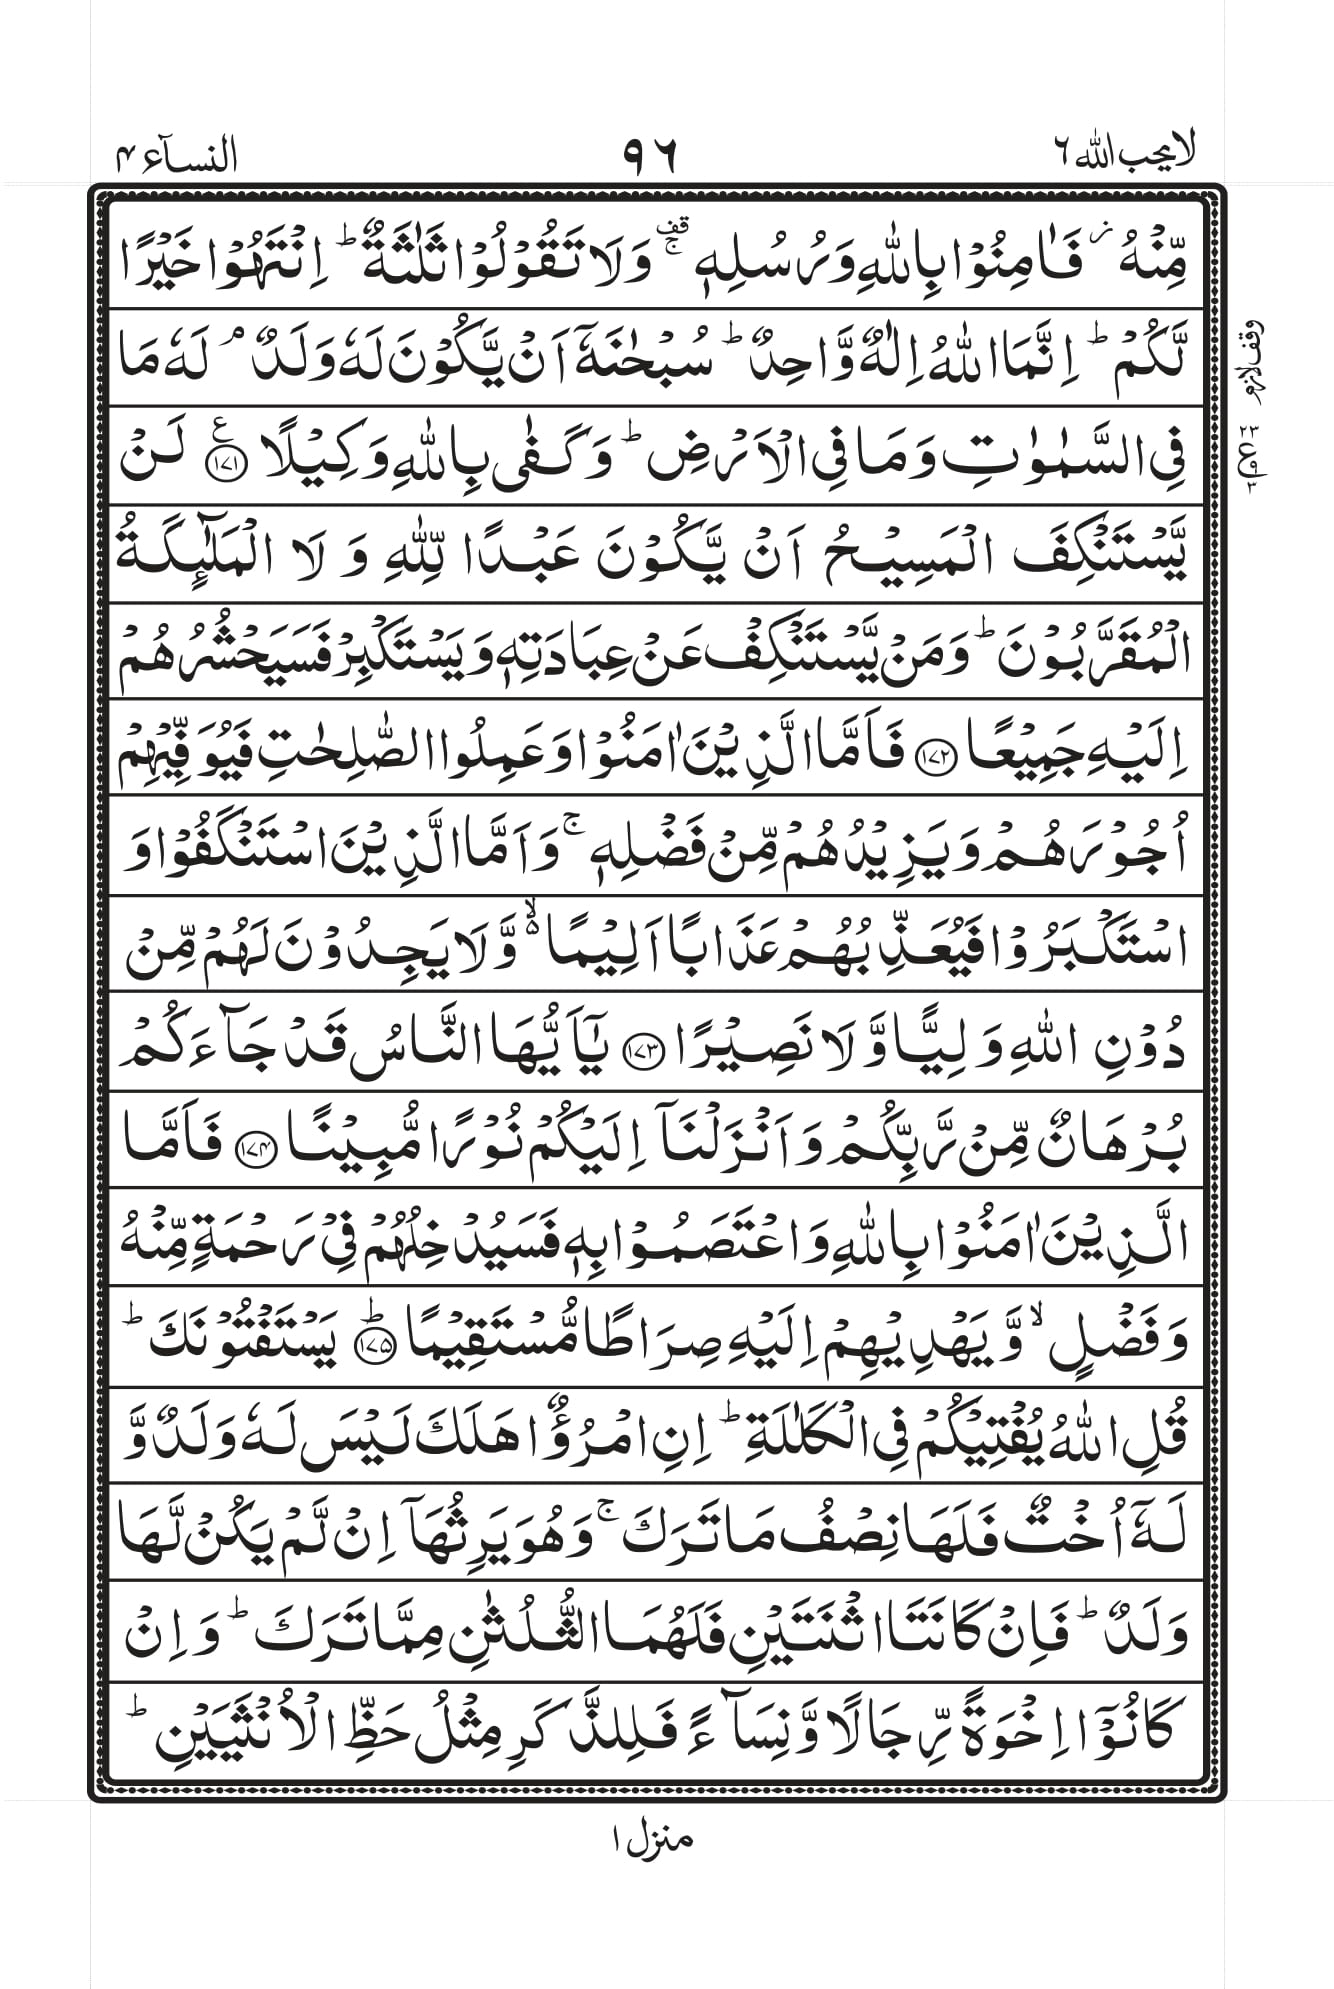 لا يحب الله ٦
٩٦
النسآء ٤
مِّنۡهُ ز فَاٰمِنُوۡا بِاللّٰهِ وَرُسُلِهٖ قف ج وَلَا تَقُوۡلُوۡا ثَلٰثَةٌ ؕ اِنۡتَهُوۡا خَيۡرًا
لَّكُمۡ ؕ اِنَّمَا اللّٰهُ اِلٰهٌ وَّاحِدٌ ؕ سُبۡحٰنَهٗۤ اَنۡ يَّكُوۡنَ لَهٗ وَلَدٌ ۘ لَهٗ مَا
وقف لازم
فِى السَّمٰوٰتِ وَمَا فِى الۡاَرۡضِ ؕ وَكَفٰى بِاللّٰهِ وَكِيۡلًا ع ﴿١٧١﴾ لَنۡ
٢٣ ع ٣
يَّسۡتَنۡكِفَ الۡمَسِيۡحُ اَنۡ يَّكُوۡنَ عَبۡدًا لِّلّٰهِ وَ لَا الۡمَلٰٓئِكَةُ
الۡمُقَرَّبُوۡنَ ؕ وَمَنۡ يَّسۡتَنۡكِفۡ عَنۡ عِبَادَتِهٖ وَيَسۡتَكۡبِرۡ فَسَيَحۡشُرُهُمۡ
اِلَيۡهِ جَمِيۡعًا ﴿١٧٢﴾ فَاَمَّا الَّذِيۡنَ اٰمَنُوۡا وَعَمِلُوا الصّٰلِحٰتِ فَيُوَفِّيۡهِمۡ
اُجُوۡرَهُمۡ وَيَزِيۡدُهُمۡ مِّنۡ فَضۡلِهٖ ۚ وَاَمَّا الَّذِيۡنَ اسۡتَنۡكَفُوۡا وَ
اسۡتَكۡبَرُوۡا فَيُعَذِّبُهُمۡ عَذَابًا اَلِيۡمًا ۙ۬ وَّلَا يَجِدُوۡنَ لَهُمۡ مِّنۡ
دُوۡنِ اللّٰهِ وَلِيًّا وَّلَا نَصِيۡرًا ﴿١٧٣﴾ يٰۤاَيُّهَا النَّاسُ قَدۡ جَآءَكُمۡ
بُرۡهَانٌ مِّنۡ رَّبِّكُمۡ وَاَنۡزَلۡنَاۤ اِلَيۡكُمۡ نُوۡرًا مُّبِيۡنًا ﴿١٧٤﴾ فَاَمَّا
الَّذِيۡنَ اٰمَنُوۡا بِاللّٰهِ وَاعۡتَصَمُوۡا بِهٖ فَسَيُدۡخِلُهُمۡ فِىۡ رَحۡمَةٍ مِّنۡهُ
وَفَضۡلٍ ۙ وَّيَهۡدِيۡهِمۡ اِلَيۡهِ صِرَاطًا مُّسۡتَقِيۡمًا ؕ ﴿١٧٥﴾ يَسۡتَفۡتُوۡنَكَ ؕ
قُلِ اللّٰهُ يُفۡتِيۡكُمۡ فِى الۡكَلٰلَةِ ؕ اِنِ امۡرُؤٌا هَلَكَ لَيۡسَ لَهٗ وَلَدٌ وَّ
لَهٗۤ اُخۡتٌ فَلَهَا نِصۡفُ مَا تَرَكَ ۚ وَهُوَ يَرِثُهَاۤ اِنۡ لَّمۡ يَكُنۡ لَّهَا
وَلَدٌ ؕ فَاِنۡ كَانَتَا اثۡنَتَيۡنِ فَلَهُمَا الثُّلُثٰنِ مِمَّا تَرَكَ ؕ وَاِنۡ
كَانُوۡۤا اِخۡوَةً رِّجَالًا وَّنِسَآءً فَلِلذَّكَرِ مِثۡلُ حَظِّ الۡاُنۡثَيَيۡنِ ؕ
منزل ١